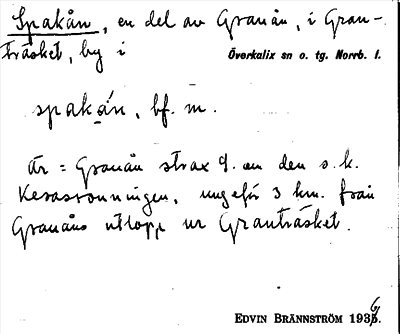 Spakån, en del av Granån, i Gran-
träsket, by i Överkalix sn o. tg. Norrb. l.
spakån, bf. m.
Är = Granån strax S. om den s. k.
ungefär 3 km. från
Granåns utlopp ur Granträsket.
EDVIN BRÄNNSTRÖM 1936.